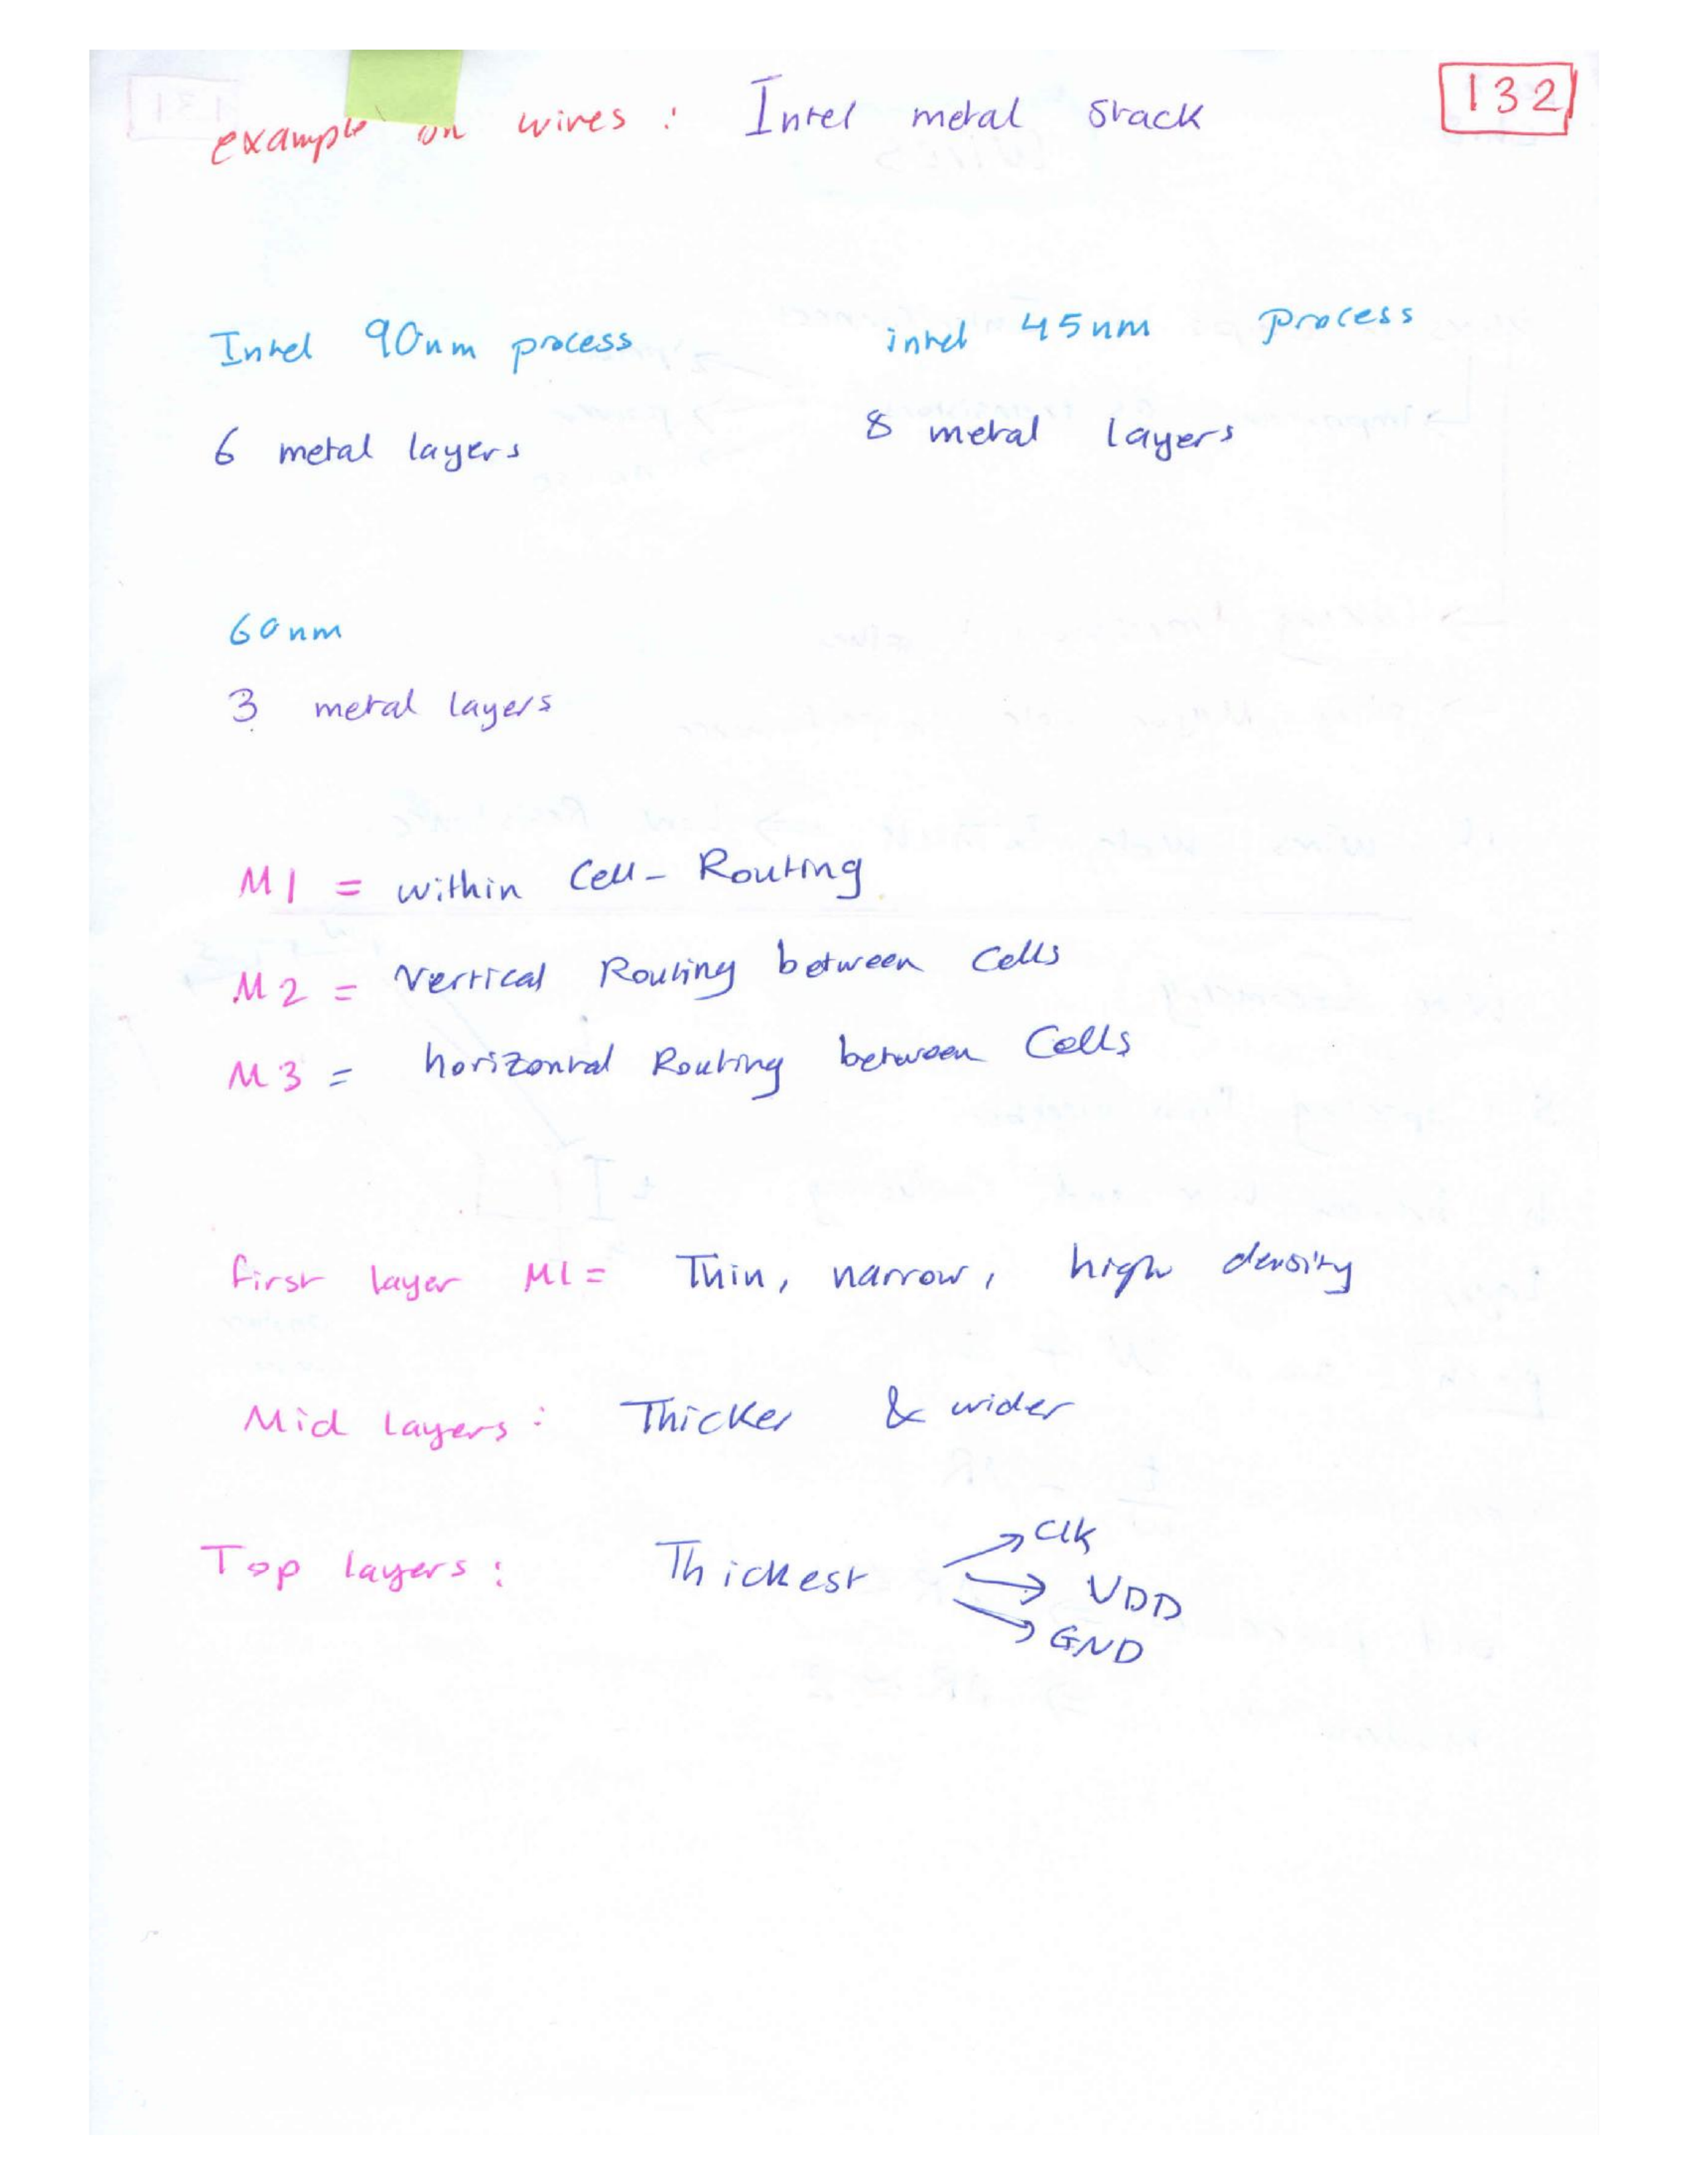 132
example on wires : Intel metal stack
Intel 90nm process
intel 45nm process
6 metal layers
8 metal layers
60nm
3 metal layers
M1 = within Cell - Routing
M2 = Vertical Routing between Cells
M3 = horizontal Routing between Cells
first layer M1 = Thin, narrow, high density
Mid layers : Thicker & wider
Top layers : Thickest → Clk
→ VDD
→ GND